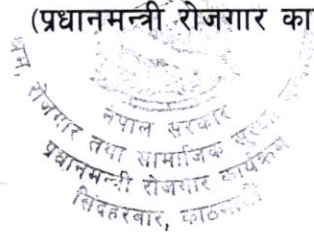 (प्रधानमन्त्री रोजगार का
श्रम, रोजगार तथा सामाजिक सुरक्षा
नेपाल सरकार
प्रधानमन्त्री रोजगार कार्यक्रम
सिंहदरबार, काठमाडौं